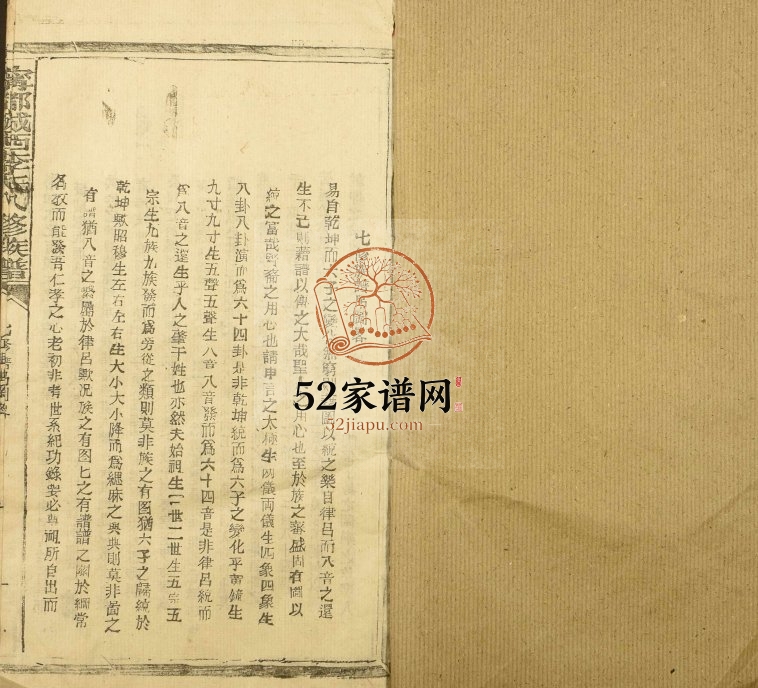 七
易自乾坤而 子之 以統之樂自律呂而八音之還
生不已則藉譜以傳之大哉聖 用心也至於族之蕃盛固有圖以
統之富哉 裔之用心也請申言之太極生兩儀兩儀生四象四象生
八卦八卦演而爲六十四卦是非乾坤統而爲六子之變化乎黃鐘生
九寸九寸生五聲五聲生八音八音發而爲六十四音是非律呂統而
爲八音之還生乎人之肇于姓也亦然夫始祖生二世二世生五宗五
宗生九族九族發而爲旁從之類則莫非族之有图猶六子之 統於
乾坤歟昭穆生左右左右生大小大小降而爲緦麻之典典則莫非 之
有譜猶八音之 屬於律呂歟况族之有图图之有譜譜之關於綱常
名教而啟發吾仁孝之心老初非者世系紀功錄娶必與 所自出而
寧都城西李氏八修族譜
52家谱网
52jiapu.com